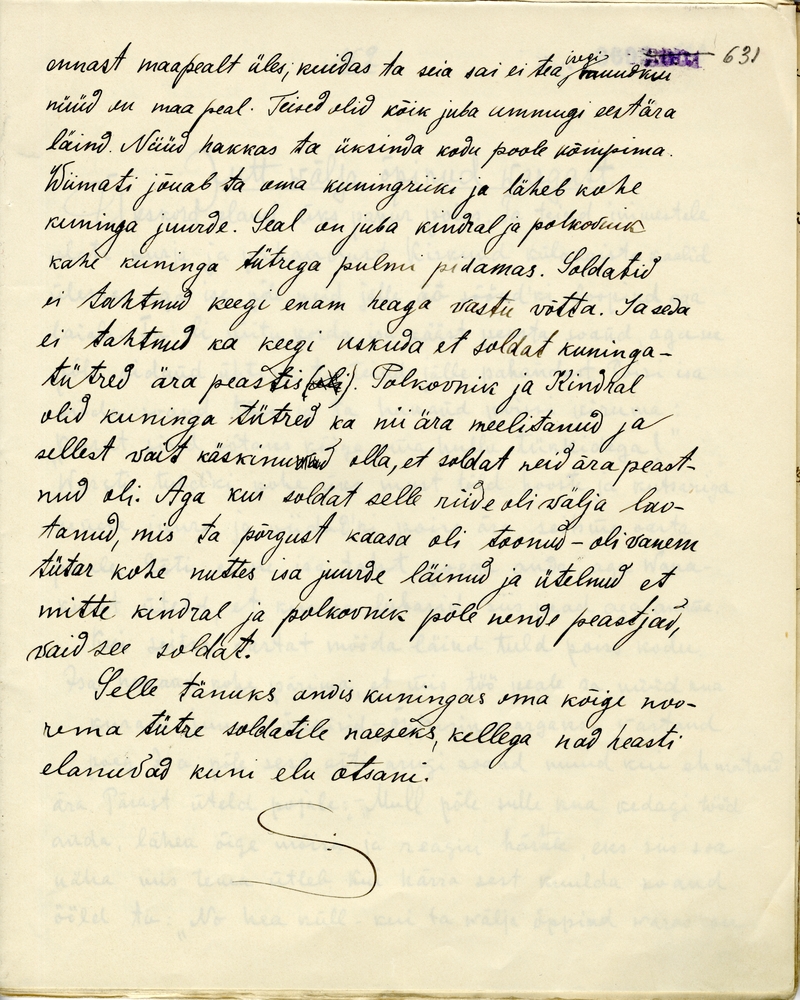 631
ennast maapealt üles; kuidas ta seia sai ei tea isegi muudkui
nüüd on maa peal. Teised olid kõik juba ummugi eest ära
läind. Nüüd hakkas ta üksinda kodu poole kõmpima.
Wiimati jõuab ta oma kuningriiki ja läheb kohe
kuninga juurde. Seal on juba kindral ja polkovnik
kahe kuninga tütrega pulmi pidamas. Soldatid
ei tahtnud keegi enam heaga vastu võtta. Ja seda
ei tahtnud ka keegi uskuda et soldat kuninga-
tütred ära peastis (oli). Polkovnik ja Kindral
olid kuninga tütred ka nii ära meelitanud ja
sellest vait käskinuwad olla, et soldat neid ära peast-
nud oli. Aga kui soldat selle riide oli wälja lao-
tanud, mis ta põrgust kaasa oli toonud – oli vanem
tütar kohe nuttes isa juurde läinud ja ütelnud et
mitte kindral ja polkovnik põle nende peastjad,
vaid see soldat.
Selle tänuks andis kuningas oma kõige noo-
rema tütre soldatile naeseks, kellega nad heasti
elanuvad kuni elu otsani.